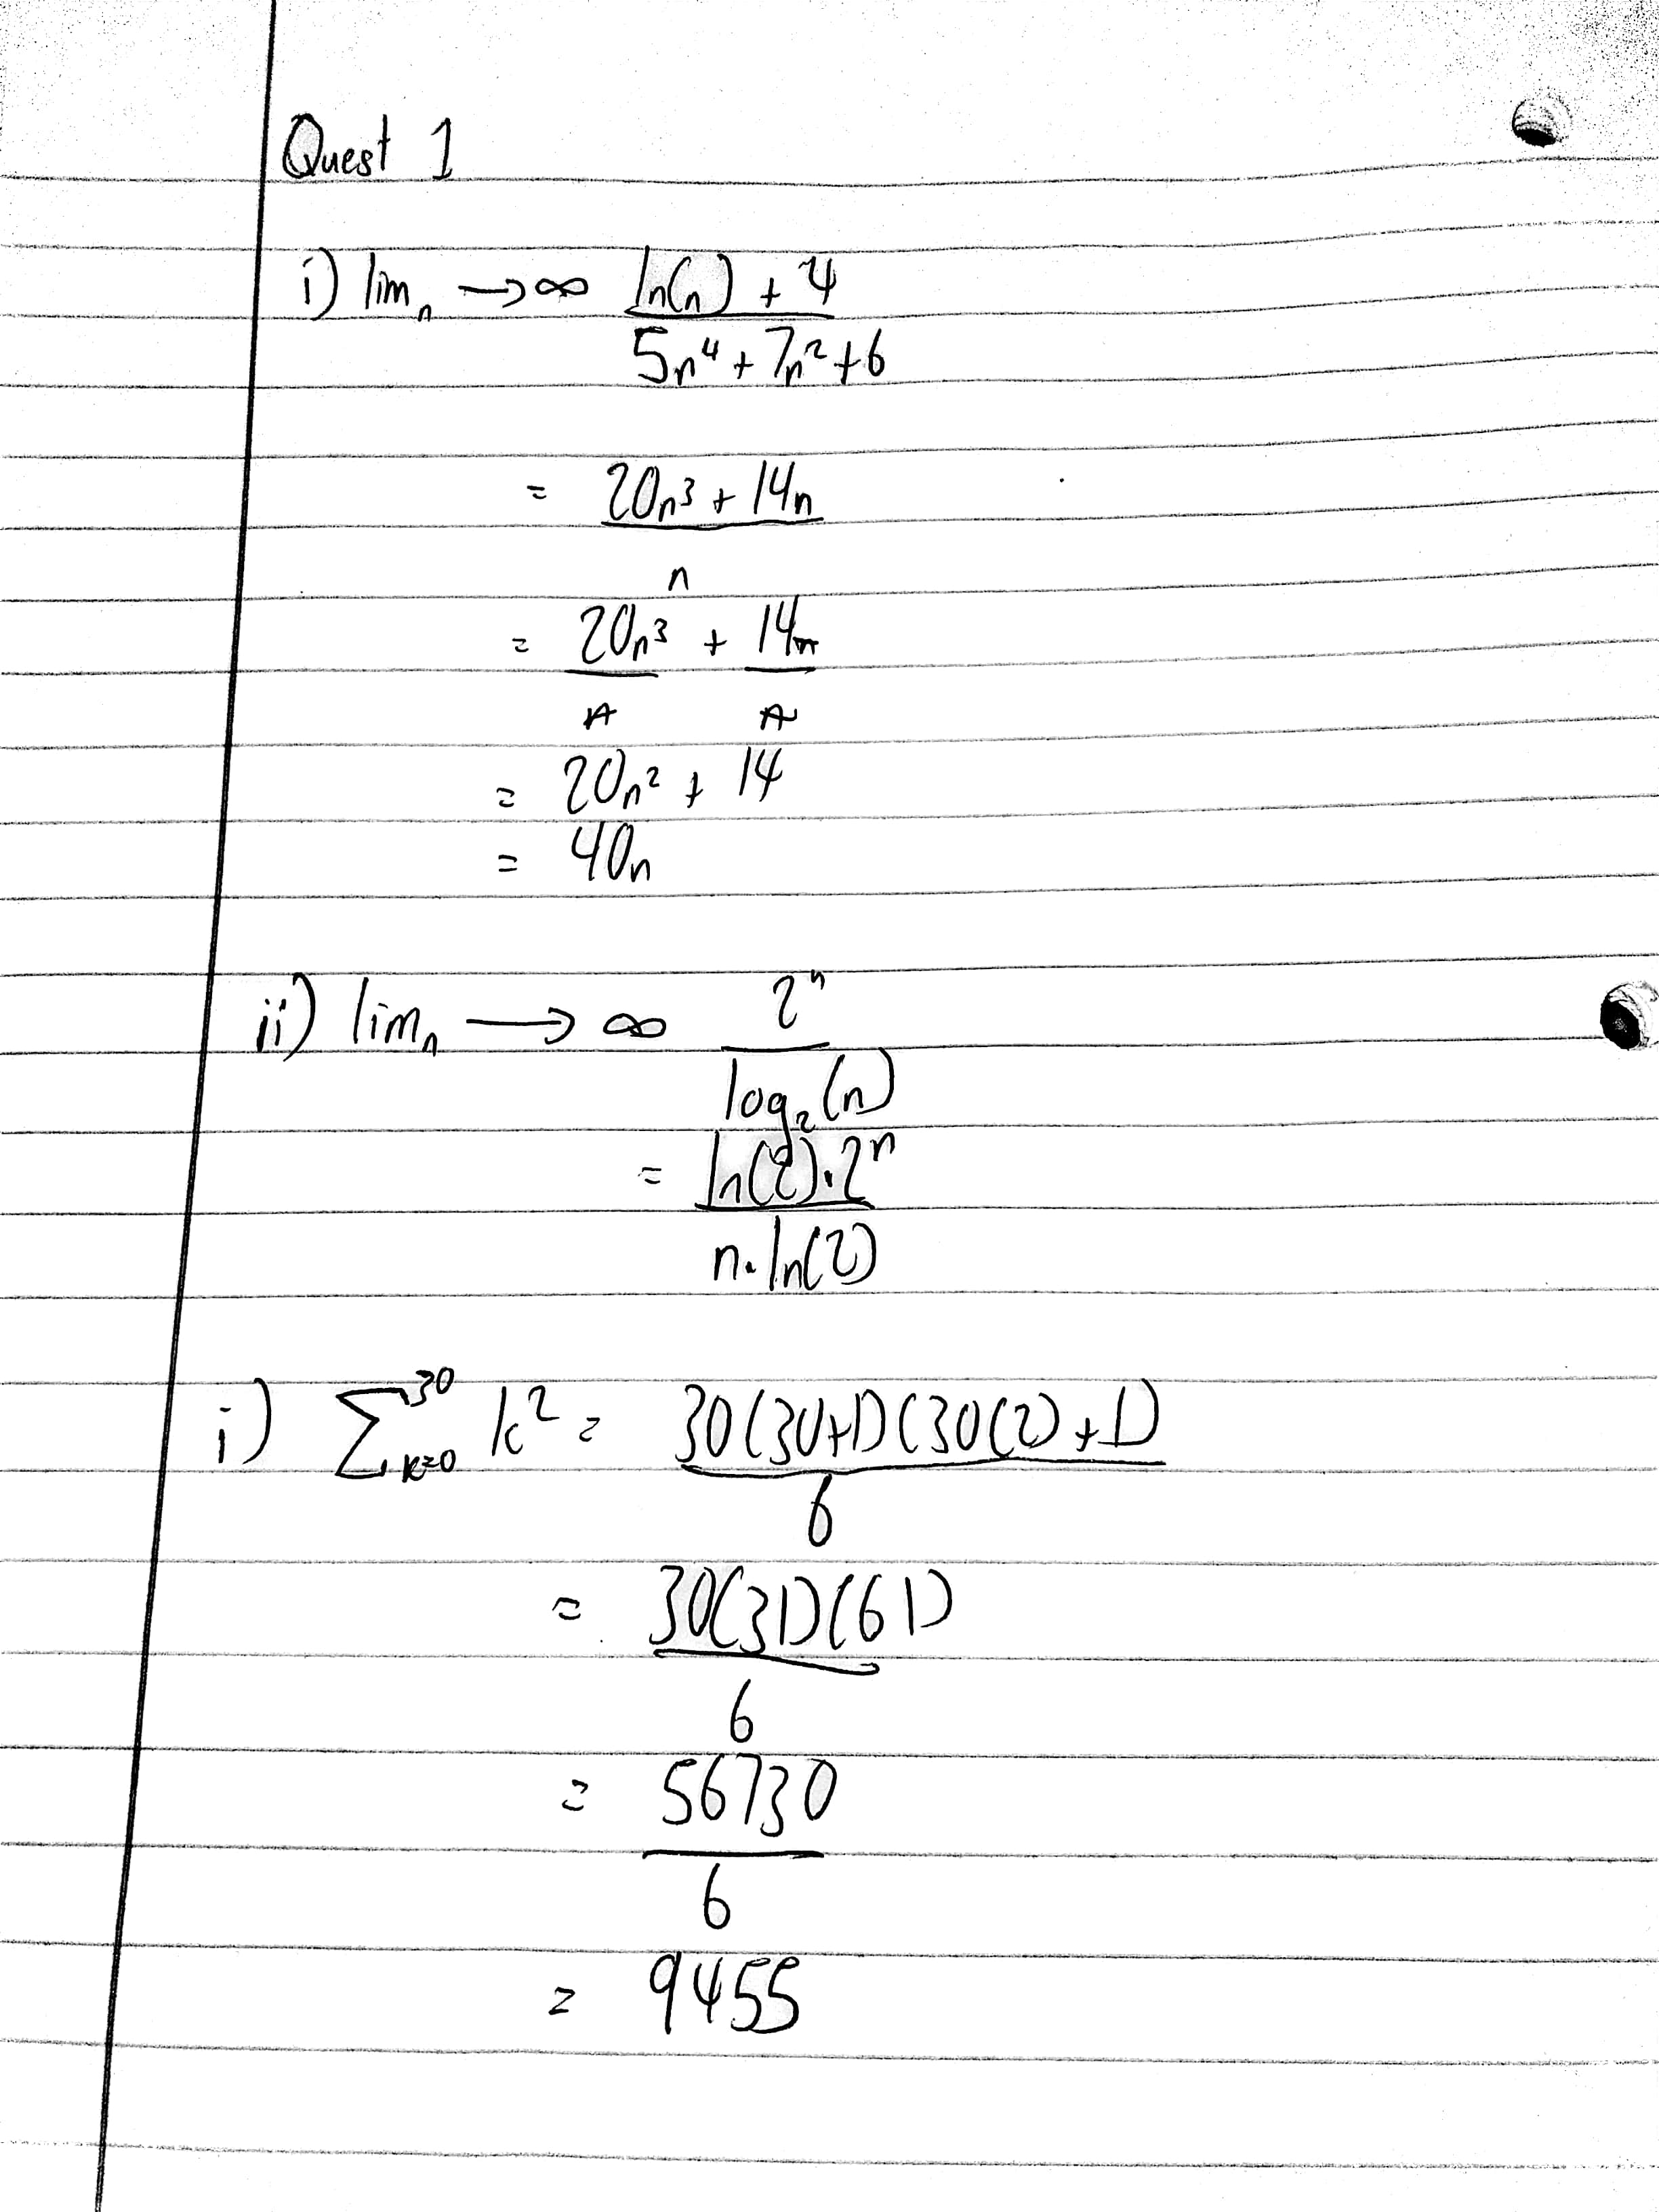 Quest 1
i) lim n → ∞ ln(n) + 4
5n⁴ + 7n² + 6
= 20n³ + 14n
n
= 20n³ + 14n
n n
= 20n² + 14
= 40n
ii) lim n → ∞ 2ⁿ
log₂(n)
= ln(2)·2ⁿ
n·ln(2)
i) ∑ k=0 30 k² = 30(30+1)(30(2)+1)
6
= 30(31)(61)
6
= 56730
6
= 9455